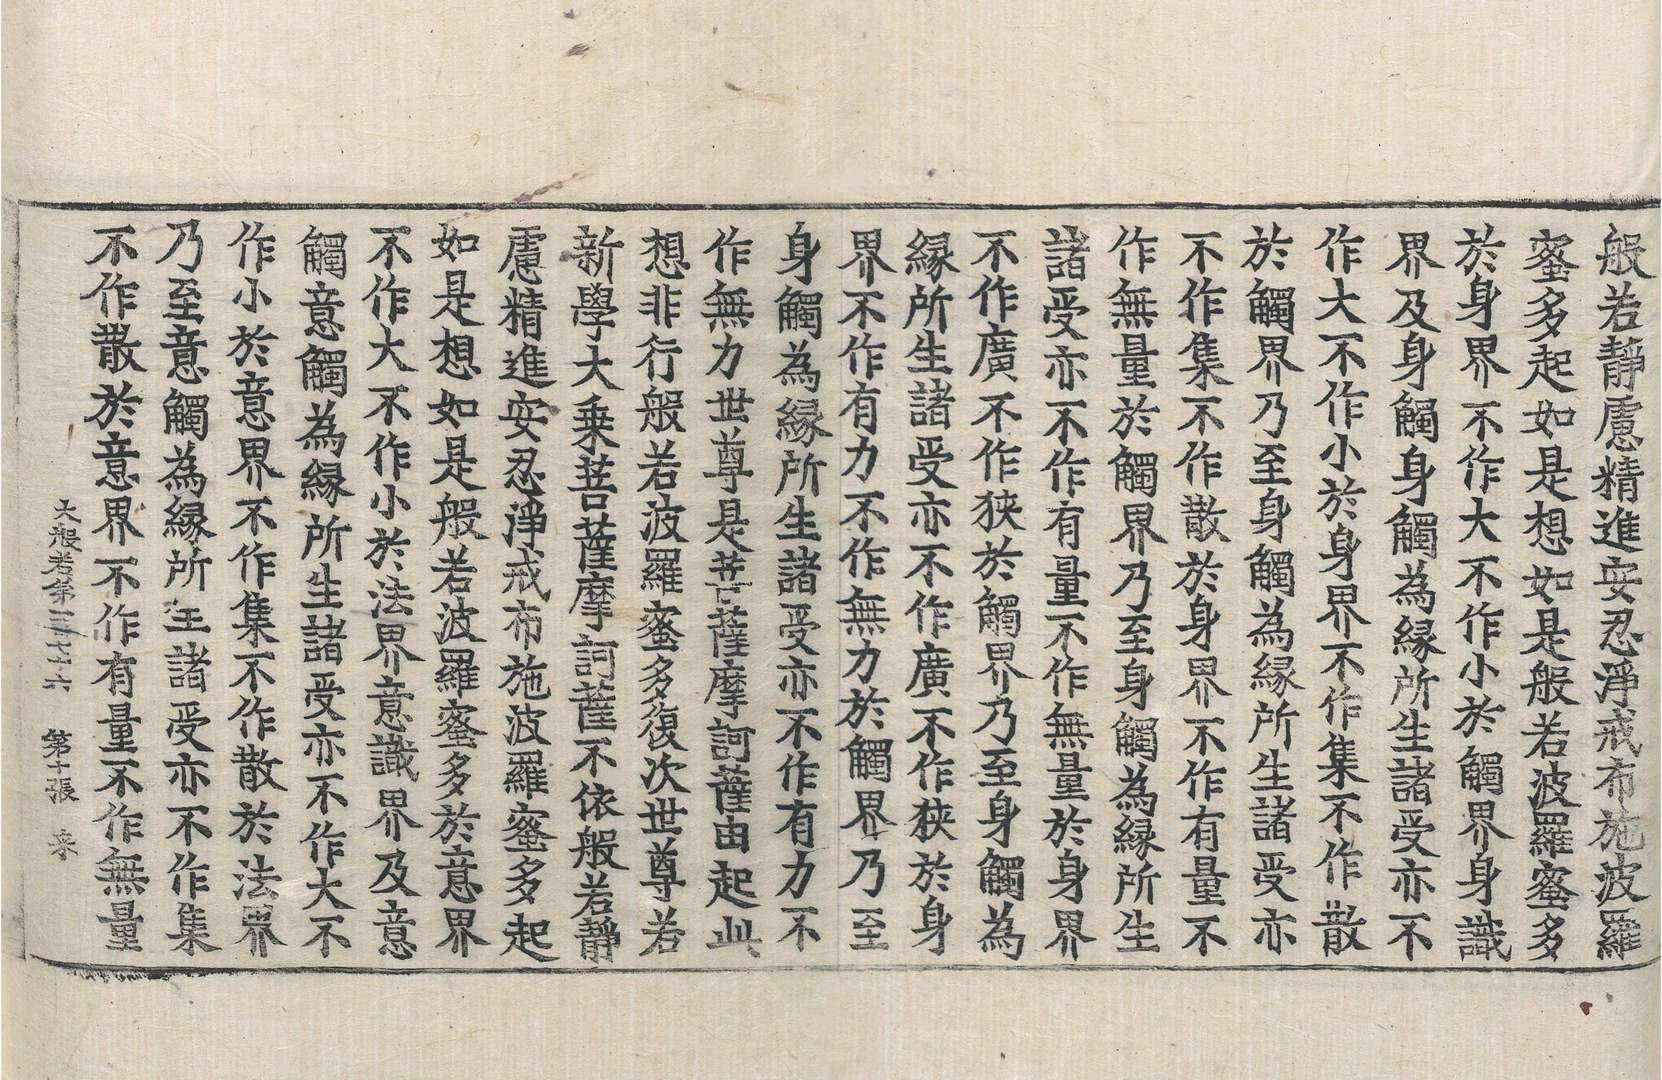 般若靜慮精進安忍淨戒布施波羅
蜜多起如是想如是般若波羅蜜多
於身界不作大不作小於觸界身識
界及身觸身觸為緣所生諸受亦不
作大不作小於身界不作集不作散
於觸界乃至身觸為緣所生諸受亦
不作集不作散於身界不作有量不
作無量於觸界乃至身觸為緣所生
諸受亦不作有量不作無量於身界
不作廣不作狹於觸界乃至身觸為
緣所生諸受亦不作廣不作狹於身
界不作有力不作無力於觸界乃至
身觸為緣所生諸受亦不作有力不
作無力世尊是菩薩摩訶薩由起此
想非行般若波羅蜜多復次世尊若
新學大乘菩薩摩訶薩不依般若靜
慮精進安忍淨戒布施波羅蜜多起
如是想如是般若波羅蜜多於意界
不作大不作小於法界意識界及意
觸意觸為緣所生諸受亦不作大不
作小於意界不作集不作散於法界
乃至意觸為緣所生諸受亦不作集
不作散於意界不作有量不作無量
大般若第一百七十六 第十張 来